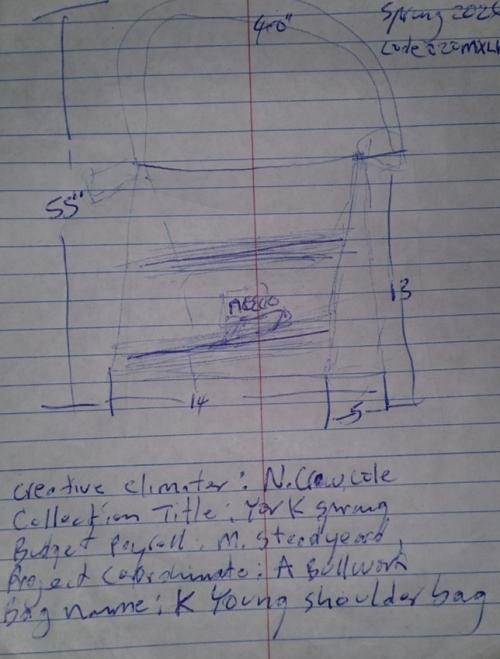 Spring 202
40"
55"
13
14
5
Creative climater: N.
Collection Title: York spring
Budget payroll: M. Steadyeard,
Project Coordinate: A Bullwork
Bag name: K Young shoulder bag